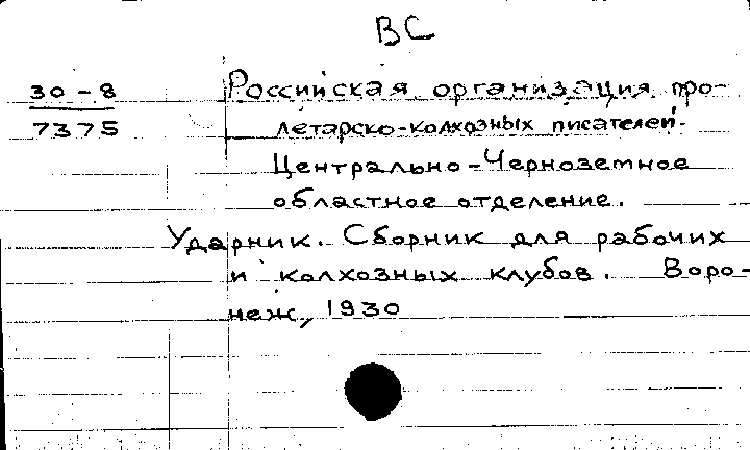 ВС
30-8
7375
Российская организация про-
летарско-колхозных писателей.
Центрально-Черноземное
областное отделение.
Ударник. Сборник для рабочих
и колхозных клубов. Воро-
неж, 1930